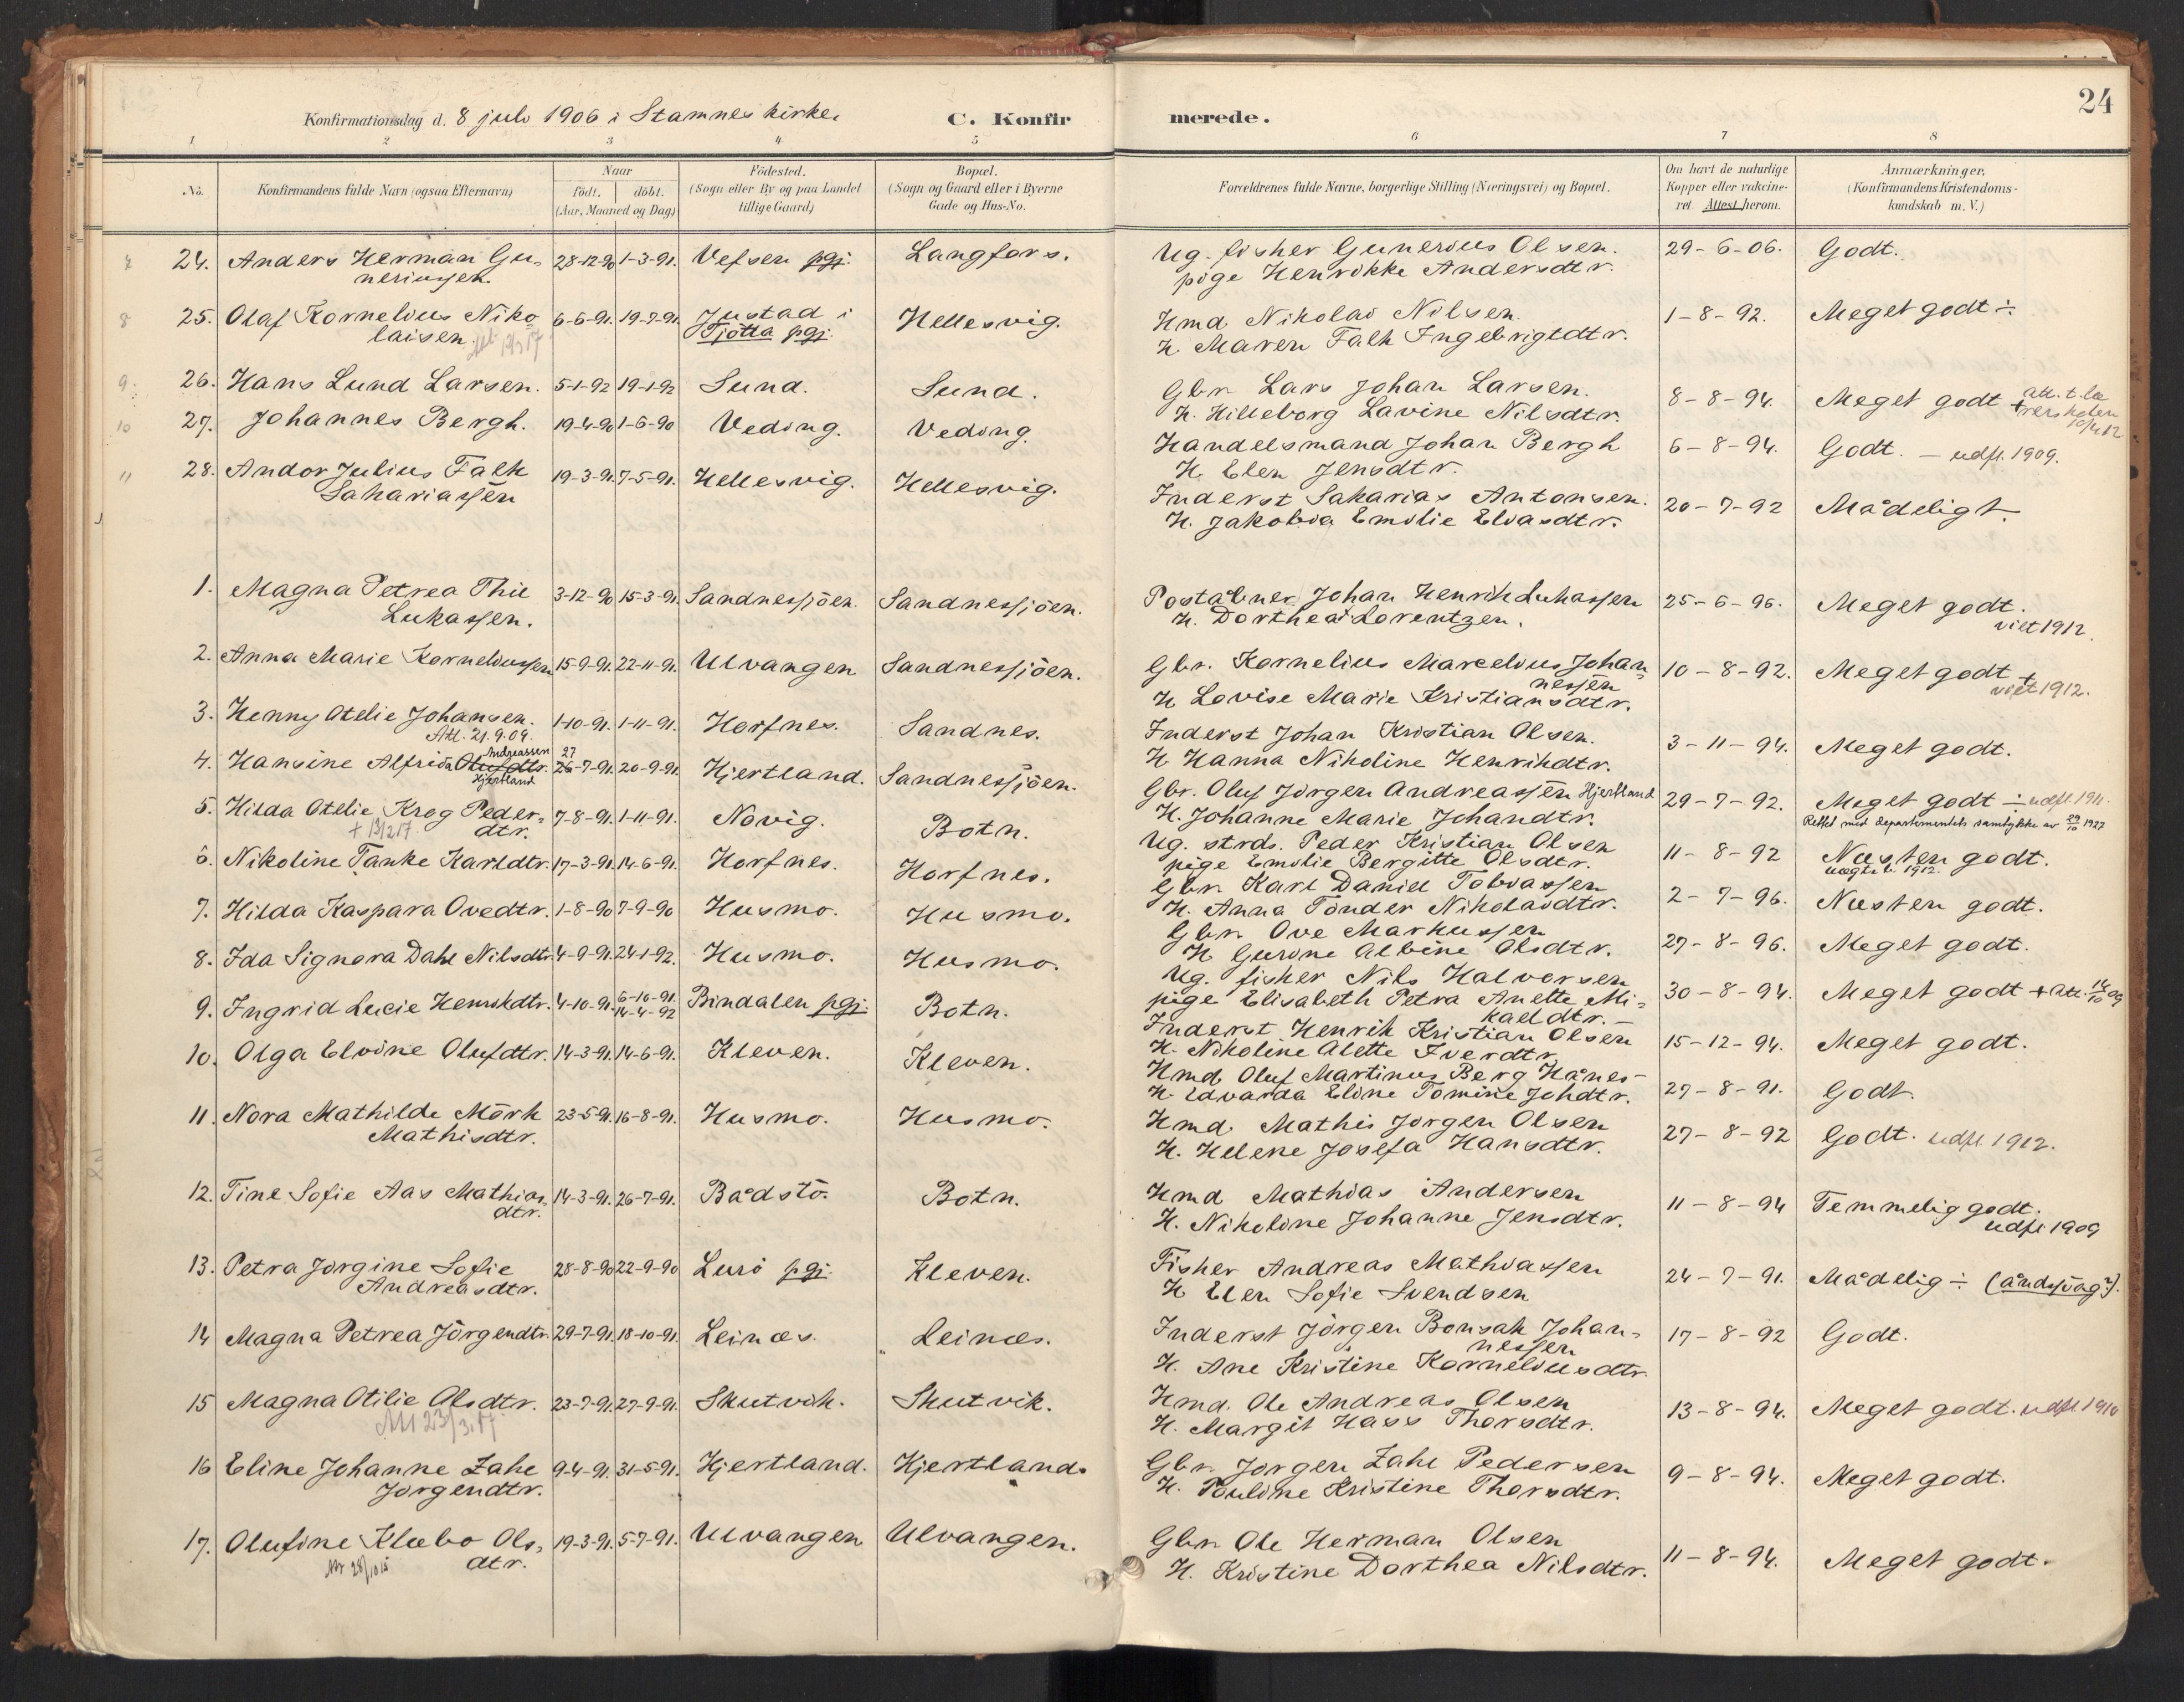 24
Konfirmationsdag d. 8 juli 1906 i Stamnes kirke.
C. Konfirmerede.
1 2 3 4 5 6 7 8
No.
Konfirmandens fulde Navn (ogsaa Efternavn)
Naar
födt. döbt.
(Aar, Maaned og Dag)
Födested.
(Sogn eller By og paa Landet
tillige Gaard)
Bopæl.
(Sogn og Gaard eller i Byerne
Gade og Hus-No.
Forældrenes fulde Navne, borgerlige Stilling (Næringsvei) og Bopæl.
Om havt de naturlige
Kopper eller vakcine-
ret. Attest herom.
Anmærkninger.
(Konfirmandens Kristendoms-
kundskab m. V.)
24. Anders Herman Gu- 28-12-90 1-3-91. Vefsen pgj. Langfors. Ug. fisker Gunerius Olsen. 29-6-06. Godt.
neriussen. pige Henrikke Andersdtr.
8 25. Olaf Kornelius Niko 6-6-91. 19-7-91. Justad i Hellesvig. Hmd. Nikolai Nilsen. 1-8-92. Meget godt ÷
laisen. Tjötta pgj. H. Maren Falk Ingebrigtdtr.
9. 26. Hans Lund Larsen. 5-1-92 19-1-92 Sund. Sund. Gbr. Lars Johan Larsen. 8-8-94. Meget godt + att. t. læ
H. Hilleborg Lavine Nilsdtr. rerskolen
10 27. Johannes Bergh. 19-4-90 1-6-90 Veding. Veding. Handelsmand Johan Bergh 6-8-94. Godt. — udfl. 1909.
H. Elen Jensdtr.
11 28. Andor Julius Falk 19-3-91. 7-5-91. Hellesvig. Hellesvig. Inderst Sakarias Antonsen. 20-7-92 Mådeligt.
Sakariassen H. Jakobia Emilie Eliasdtr.
1. Magna Petrea Thie 3-12-90 15-3-91. Sandnessjöen. Sandnessjöen. Poståbner Johan Henrik Lukassen 25-6-96. Meget godt.
Lukassen. H. Dorthea Lorentzen. viet 1912.
2. Anna Marie Korneliussen 15-9-91. 22-11-91. Ulvangen Sandnessjöen. Gbr. Kornelius Marcelius Johan 10-8-92. Meget godt +
nessen viet 1912.
H. Lovise Marie Kristiansdtr.
3. Henny Otelie Johansen. 1-10-91. 1-11-91. Horfnes. Sandnes. Inderst Johan Kristian Olsen. 3-11-94. Meget godt.
Att. 21.9.09. H. Hanna Nikoline Henrikdtr.
Andreassen 27
4. Hansine Alfrida Olufdtr. 26-7-91. 20-9-91. Hjertland. Sandnessjöen. Gbr. Oluf Jörgen Andreassen Hjertland 29-7-92. Meget godt ÷ udfl. 1911.
Hjertland H. Johanne Marie Johandtr. Rettet med departementets samtykke av 29/10 1927
5. Hilda Otelie Krog Peder- 7-8-91. 1-11-91. Novig. Botn. Ug. strds. Peder Kristian Olsen 11-8-92 Næsten godt.
dtr. pige Emilie Bergitte Olsdtr.
6. Nikoline Tanke Karldtr. 17-3-91. 14-6-91. Horfnes. Horfnes. Gbr. Karl Daniel Tobiassen 2-7-96. Næsten godt.
H. Anna Tönder Nikolaidtr.
7. Hilda Kaspara Ovedtr. 1-8-90 7-9-90 Husmo. Husmo. Gbr. Ove Markussen 27-8-96. Meget godt.
H. Gurine Albine Olsdtr.
8. Ida Signora Dahl Nilsdtr. 4-9-91. 24-1-92. Husmo. Husmo. Ug. fisker Nils Halvorsen 30-8-94. Meget godt + Att. 14/10 09
pige Elisabeth Petra Anette Mi-
kaeldtr. —
9. Ingrid Lucie Henrikdtr. 4-10-91. 6-10-91. Bindalen pgj. Botn. Inderst Henrik Kristian Olsen 15-12-94. Meget godt.
14-4-92 H. Nikoline Alette Iverdtr.
10. Olga Elvine Olufdtr. 14-3-91. 14-6-91. Kleven. Kleven. Hmd. Oluf Martinus Berg Hånes- 27-8-91. Godt.
H. Edvarda Eline Tomine Johdtr.
11. Nora Mathilde Mörk 23-5-91. 16-8-91. Husmo. Husmo. Hmd. Mathis Jörgen Olsen 27-8-92 Godt. udfl. 1912.
Mathisdtr. H. Helene Josefa Hansdtr.
12. Tine Sofie Aas Mathias 14-3-91. 26-7-91. Bådstö. Botn. Hmd Mathias Andersen 11-8-94 Temmelig godt.
dtr. H. Nikoline Johanne Jensdtr. udfl. 1909
13. Petra Jörgine Sofie 28-8-90 22-9-90 Lurö pgj. Kleven. Fisker Andreas Mathiassen 24-7-91. Mådelig ÷ (åndssvag?).
Andreasdtr. H. Elen Sofie Svendsen
14 Magna Petrea Jörgendtr. 29-7-91. 18-10-91. Leines. Leines. Inderst Jörgen Bonsak Johan- 17-8-92 Godt.
nessen
H. Ane Kristine Korneliusdtr.
15 Magna Otilie Olsdtr. 23-7-91. 27-9-91. Skutvik. Skutvik. Hmd. Ole Andreas Olsen 13-8-94. Meget godt. udfl. 1910
Att 23/3.17 H. Margit Hass Thorsdtr.
16 Eline Johanne Zahl 9-4-91. 31-5-91. Hjertland. Hjertland. Gbr. Jörgen Zahl Pedersen 9-8-94. Meget godt.
Jörgendtr. H. Pauline Kristine Thorsdtr.
17. Olufine Klæbo Ols- 19-3-91. 5-7-91. Ulvangen Ulvangen. Gbr Ole Herman Olsen 11-8-94. Meget godt.
28/10 15 dtr. H. Kristine Dorthea Nilsdtr.